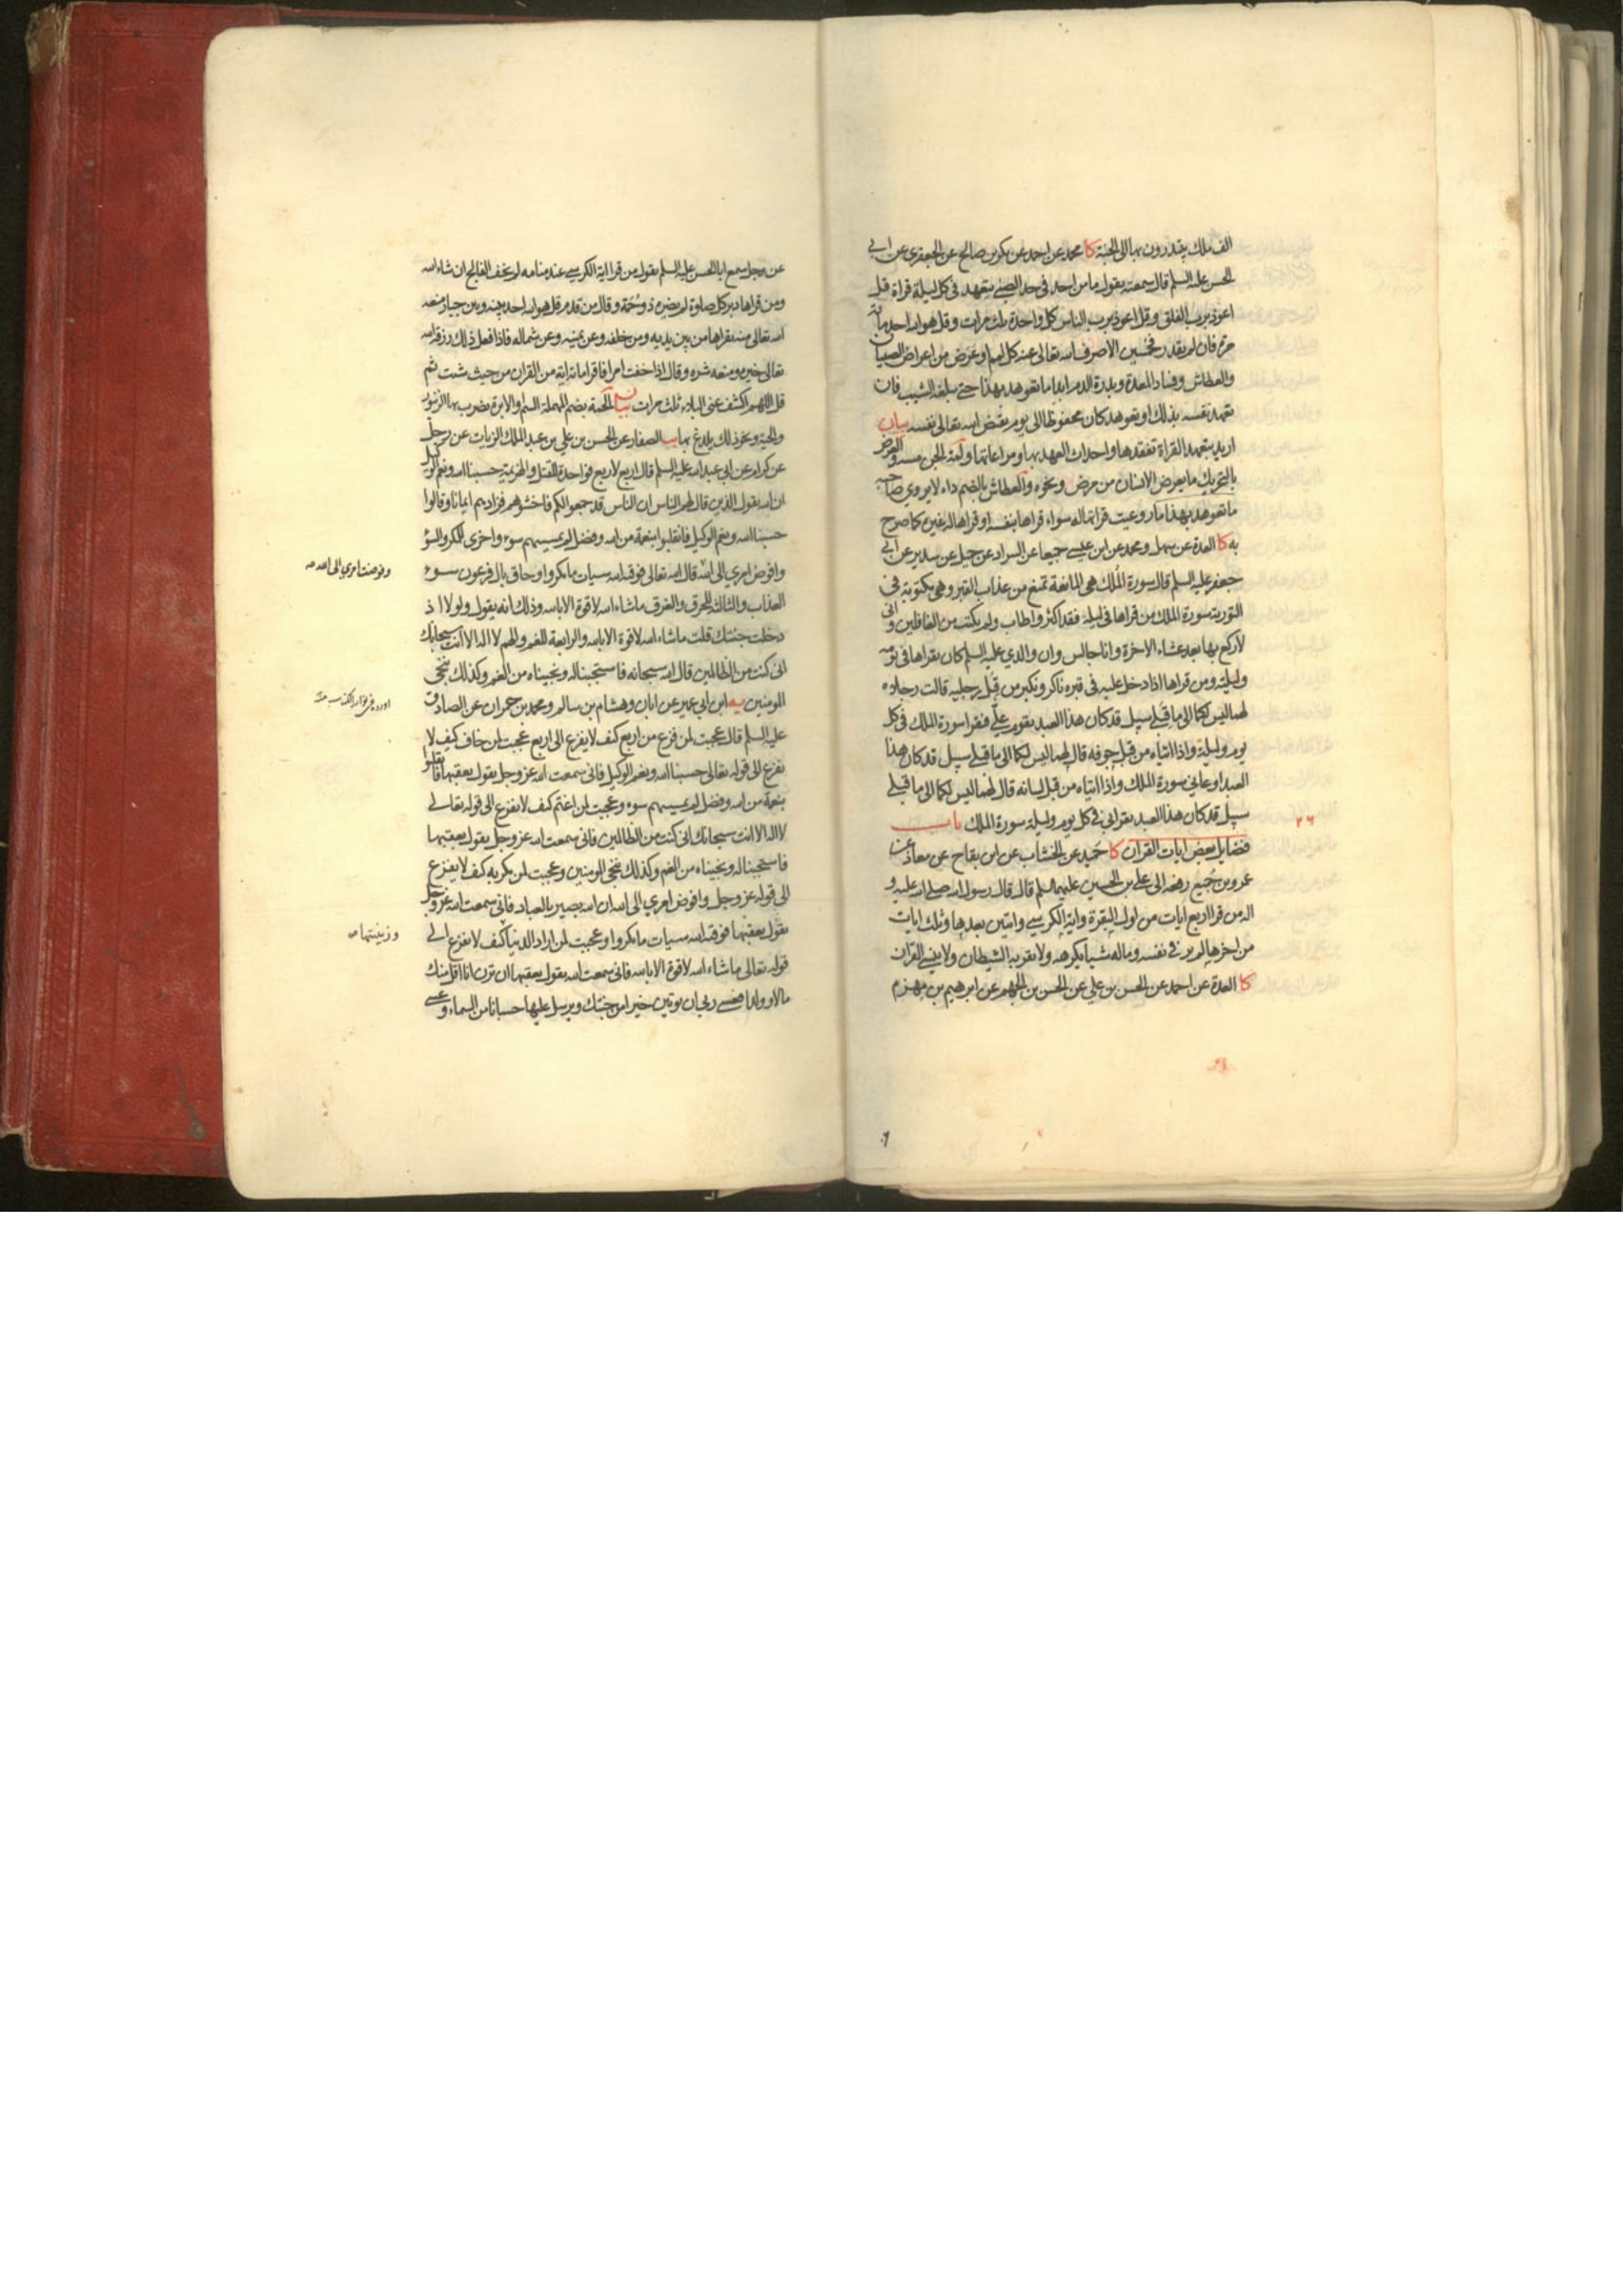 الف ملك يبتدرون بها الى الجنة كا محمد عن احمد عن بكر بن صالح عن الجعفري عن ابي
الحسن عليه السلم قال سمعته يقول ما من احد في حد الصبي يتعهد في كل ليلة قراة قل
اعوذ برب الفلق وقل اعوذ برب الناس كل واحدة ثلث مرات وقل هو الله احد مائة
مرة فان لم يقدر فخمسين الا صرف الله تعالى عنه كل لمم او عرض من اعراض الصبيان
والعطاش وفساد المعدة وبدرة الدم ابدا ما تعوهد بهذا حتى يبلغه الشيب فان
تعهد نفسه بذلك او تعوهد كان محفوظا الى يوم يقبض الله تعالى نفسه بيان
اريد بتعهد القراة تفقدها واحداث العهد بها ومراعاتها ولمة الجن مسه والعرض
بالتحريك ما يعرض الانسان من مرض ونحوه والعطاش بالضم داء لا يروي صاحبه
ما تعوهد بهذا ما روعيت قراتها له سواء قراها بنفسه او قراها له غيره كما صرح
به كا العدة عن سهل ومحمد عن ابن عيسى جميعا عن السراد عن جميل عن سدير عن ابي
جعفر عليه السلم قال سورة الملك هي المانعة تمنع من عذاب القبر وهي مكتوبة في
التورية سورة الملك من قراها في ليلة فقد اكثر واطاب ولم يكتب من الغافلين واني
لاركع بها بعد عشاء الاخرة وانا جالس وان والدي عليه السلم كان يقراها في يومه
وليلته ومن قراها اذا دخل عليه في قبره ناكر ونكير من قبل رجليه قالت رجلاه
لهما ليس لكما الى ما قبلي سبيل قد كان هذا العبد يقوم علي فيقرا سورة الملك في كل
يوم وليلة واذا اتياه من قبل جوفه قال لهما ليس لكما الى ما قبلي سبيل قد كان هذا
العبد اوعاني سورة الملك واذا اتياه من قبل لسانه قال لهما ليس لكما الى ما قبلي
سبيل قد كان هذا العبد يقرا بي في كل يوم وليلة سورة الملك باب
٢٦
فضايل بعض ايات القران كا حميد عن الخشاب عن ابن بقاح عن معاذ عن
عمرو بن جميع رفعه الى علي بن الحسين عليهما السلم قال قال رسول الله صلى الله عليه و
اله من قرا اربع ايات من اول البقرة واية الكرسي وايتين بعدها وثلث ايات
من اخرها لم ير في نفسه وماله شيئا يكرهه ولا يقربه الشيطان ولا ينسي القران
كا العدة عن احمد عن الحسن بن علي عن الحسن بن الجهم عن ابرهيم بن مهزم
عن رجل سمع ابا الحسن عليه السلم يقول من قرا اية الكرسي عند منامه لم يخف الفالج ان شاء الله
ومن قراها دبر كل صلوة لم يضره ذو حمة وقال من قدم قل هو الله احد بينه وبين جبار منعه
الله تعالى منه يقراها من بين يديه ومن خلفه وعن يمينه وعن شماله فاذا فعل ذلك رزقه الله
تعالى خيره ومنعه شره وقال اذا خفت امرا فاقرا مائة اية من القران من حيث شئت ثم
قل اللهم اكشف عني البلاء ثلث مرات بيان الحمة بضم المهملة السم والابرة يضرب بها الزنبور
والحية ونحو ذلك يلدغ بها يب الصفار عن الحسن بن علي بن عبد الملك الزيات عن رجل
عن كرام عن ابي عبد الله عليه السلم قال اربع لاربع فواحدة للقتل والهزيمة حسبنا الله ونعم الوكيل
ان الله يقول الذين قال لهم الناس ان الناس قد جمعوا لكم فاخشوهم فزادهم ايمانا وقالوا
حسبنا الله ونعم الوكيل فانقلبوا بنعمة من الله وفضل لم يمسسهم سوء واخرى للمكر والسؤ
وافوض امري الى الله قال الله تعالى فوقيه الله سيات ما مكروا وحاق بال فرعون سوء
وفوضت امري الى الله
العذاب والثالثة للحرق والغرق ما شاء الله لا قوة الا بالله وذلك انه يقول ولولا اذ
دخلت جنتك قلت ما شاء الله لا قوة الا بالله والرابعة للغم والهم لا اله الا انت سبحانك
اني كنت من الظالمين قال الله سبحانه فاستجبنا له ونجيناه من الغم وكذلك ننجي
المومنين يه ابن ابي عمير عن ابان وهشام بن سالم ومحمد بن حمران عن الصادق
عليه السلم قال عجبت لمن فزع من اربع كيف لا يفزع الى اربع عجبت لمن خاف كيف لا
يفزع الى قوله تعالى حسبنا الله ونعم الوكيل فاني سمعت الله عز وجل يقول بعقبها فانقلبوا
بنعمة من الله وفضل لم يمسسهم سوء وعجبت لمن اغتم كيف لا يفزع الى قوله تعالى
لا اله الا انت سبحانك اني كنت من الظالمين فاني سمعت الله عز وجل يقول بعقبها
فاستجبنا له ونجيناه من الغم وكذلك ننجي المومنين وعجبت لمن مكر به كيف لا يفزع
الى قوله عز وجل وافوض امري الى الله ان الله بصير بالعباد فاني سمعت الله عز وجل
يقول بعقبها فوقيه الله سيات ما مكروا وعجبت لمن اراد الدنيا كيف لا يفزع الى
وزينتها
قوله تعالى ما شاء الله لا قوة الا بالله فاني سمعت الله يقول بعقبها ان ترن انا اقل منك
مالا وولدا فعسى ربي ان يوتين خيرا من جنتك ويرسل عليها حسبانا من السماء وعسى